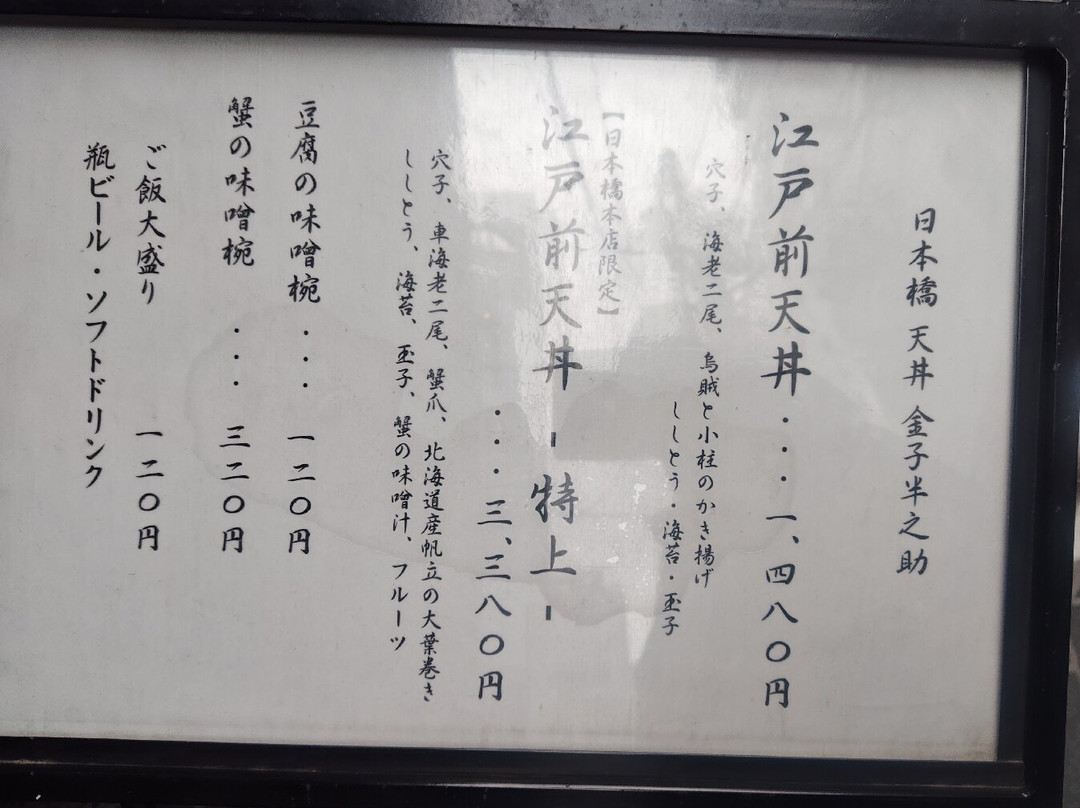 日本橋 天丼 金子半之助
江戸前天丼・・・一、四八〇円
穴子、海老二尾、烏賊と小柱のかき揚げ
ししとう・海苔・玉子
【日本橋本店限定】
江戸前天丼 -特上-
・・・三、三八〇円
穴子、車海老二尾、蟹爪、北海道産帆立の大葉巻き
ししとう、海苔、玉子、蟹の味噌汁、フルーツ
豆腐の味噌椀・・・一二〇円
蟹の味噌椀・・・三二〇円
ご飯大盛り 一二〇円
瓶ビール・ソフトドリンク